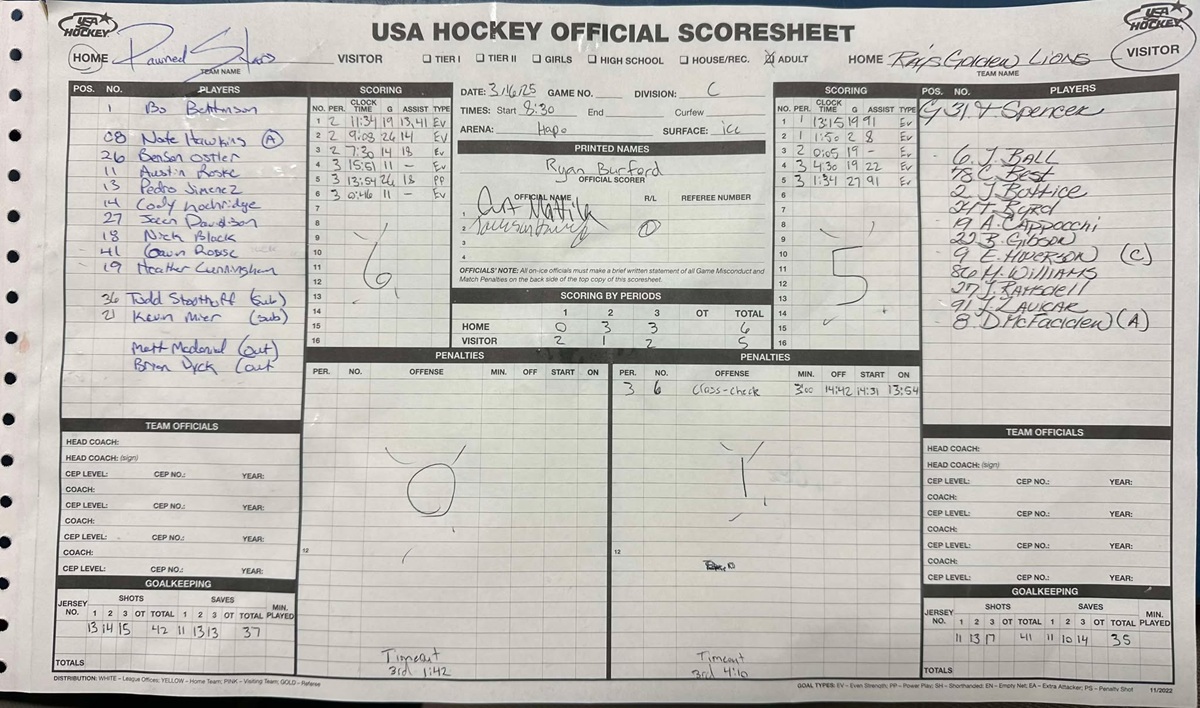 USA HOCKEY
USA HOCKEY OFFICIAL SCORESHEET
USA HOCKEY
HOME Pawned Stars VISITOR
TEAM NAME
☐ TIER I ☐ TIER II ☐ GIRLS ☐ HIGH SCHOOL ☐ HOUSE/REC. ☒ ADULT
HOME Ray's Golden Lions VISITOR
TEAM NAME
POS. NO. PLAYERS
1 Bo
08 Nate Hawkins (A)
26 Benson Ostler
11 Austin Roske
13 Pedro Jimenez
14 Cody Lochridge
27 Jason Davidson
18 Nick Black
41 Gavin
19 Heather Cunningham
36 Todd Stoothoff (sub)
21 Kevin Mier (sub)
Matt McDonald (out)
Brian Dyck (out
SCORING
NO. PER. CLOCK TIME G ASSIST TYPE
1 2 11:34 19 13,41 Ev
2 2 9:03 26 14 Ev
3 2 7:30 14 18 Ev
4 3 15:51 11 - Ev
5 3 13:54 26 18 PP
6 3 0:46 11 - Ev
7
8
9
10
11
12
13
14
15
16
6
DATE: 3/16/25 GAME NO. DIVISION: C
TIMES: Start 8:30 End Curfew
ARENA: Hapo SURFACE: ice
PRINTED NAMES
Ryan Burford
OFFICIAL SCORER
OFFICIAL NAME R/L REFEREE NUMBER
1
2
3
4
OFFICIALS' NOTE: All on-ice officials must make a brief written statement of all Game Misconduct and
Match Penalties on the back side of the top copy of this scoresheet.
SCORING BY PERIODS
1 2 3 OT TOTAL
HOME 0 3 3 6
VISITOR 2 1 2 5
SCORING
NO. PER. CLOCK TIME G ASSIST TYPE
1 1 13:15 19 91 Ev
2 1 1:50 2 8 Ev
3 2 0:05 19 - Ev
4 3 4:30 19 22 Ev
5 3 1:34 27 91 Ev
6
7
8
9
10
11
12
13
14
15
16
5
POS. NO. PLAYERS
G 31 Y Spencer
6 J. BALL
78 C. Best
2 J. Bottice
T. Byrd
19 A. CAppocchi
22 B. Gibson
9 E. (C)
86 M. WILLIAMS
27 J. RAMSDELL
91 J. LAUCAR
8 D. McFadden (A)
PENALTIES
PER. NO. OFFENSE MIN. OFF START ON
0
12
Timeout
3rd 1:42
PENALTIES
PER. NO. OFFENSE MIN. OFF START ON
3 6 Cross-check 3:00 14:42 14:31 13:54
1
12
Timeout
3rd 4:10
TEAM OFFICIALS
HEAD COACH:
HEAD COACH: (sign)
CEP LEVEL: CEP NO.: YEAR:
COACH:
CEP LEVEL: CEP NO.: YEAR:
COACH:
CEP LEVEL: CEP NO.: YEAR:
COACH:
CEP LEVEL: CEP NO.: YEAR:
GOALKEEPING
JERSEY NO. SHOTS SAVES MIN. PLAYED
1 2 3 OT TOTAL 1 2 3 OT TOTAL
13 14 15 42 11 13 13 37
TOTALS
TEAM OFFICIALS
HEAD COACH:
HEAD COACH: (sign)
CEP LEVEL: CEP NO.: YEAR:
COACH:
CEP LEVEL: CEP NO.: YEAR:
COACH:
CEP LEVEL: CEP NO.: YEAR:
COACH:
CEP LEVEL: CEP NO.: YEAR:
GOALKEEPING
JERSEY NO. SHOTS SAVES MIN. PLAYED
1 2 3 OT TOTAL 1 2 3 OT TOTAL
11 13 17 41 11 10 14 35
TOTALS
DISTRIBUTION: WHITE – League Offices; YELLOW – Home Team; PINK – Visiting Team; GOLD – Referee
GOAL TYPES: EV – Even Strength; PP – Power Play; SH – Shorthanded; EN – Empty Net; EA – Extra Attacker; PS – Penalty Shot 11/2022